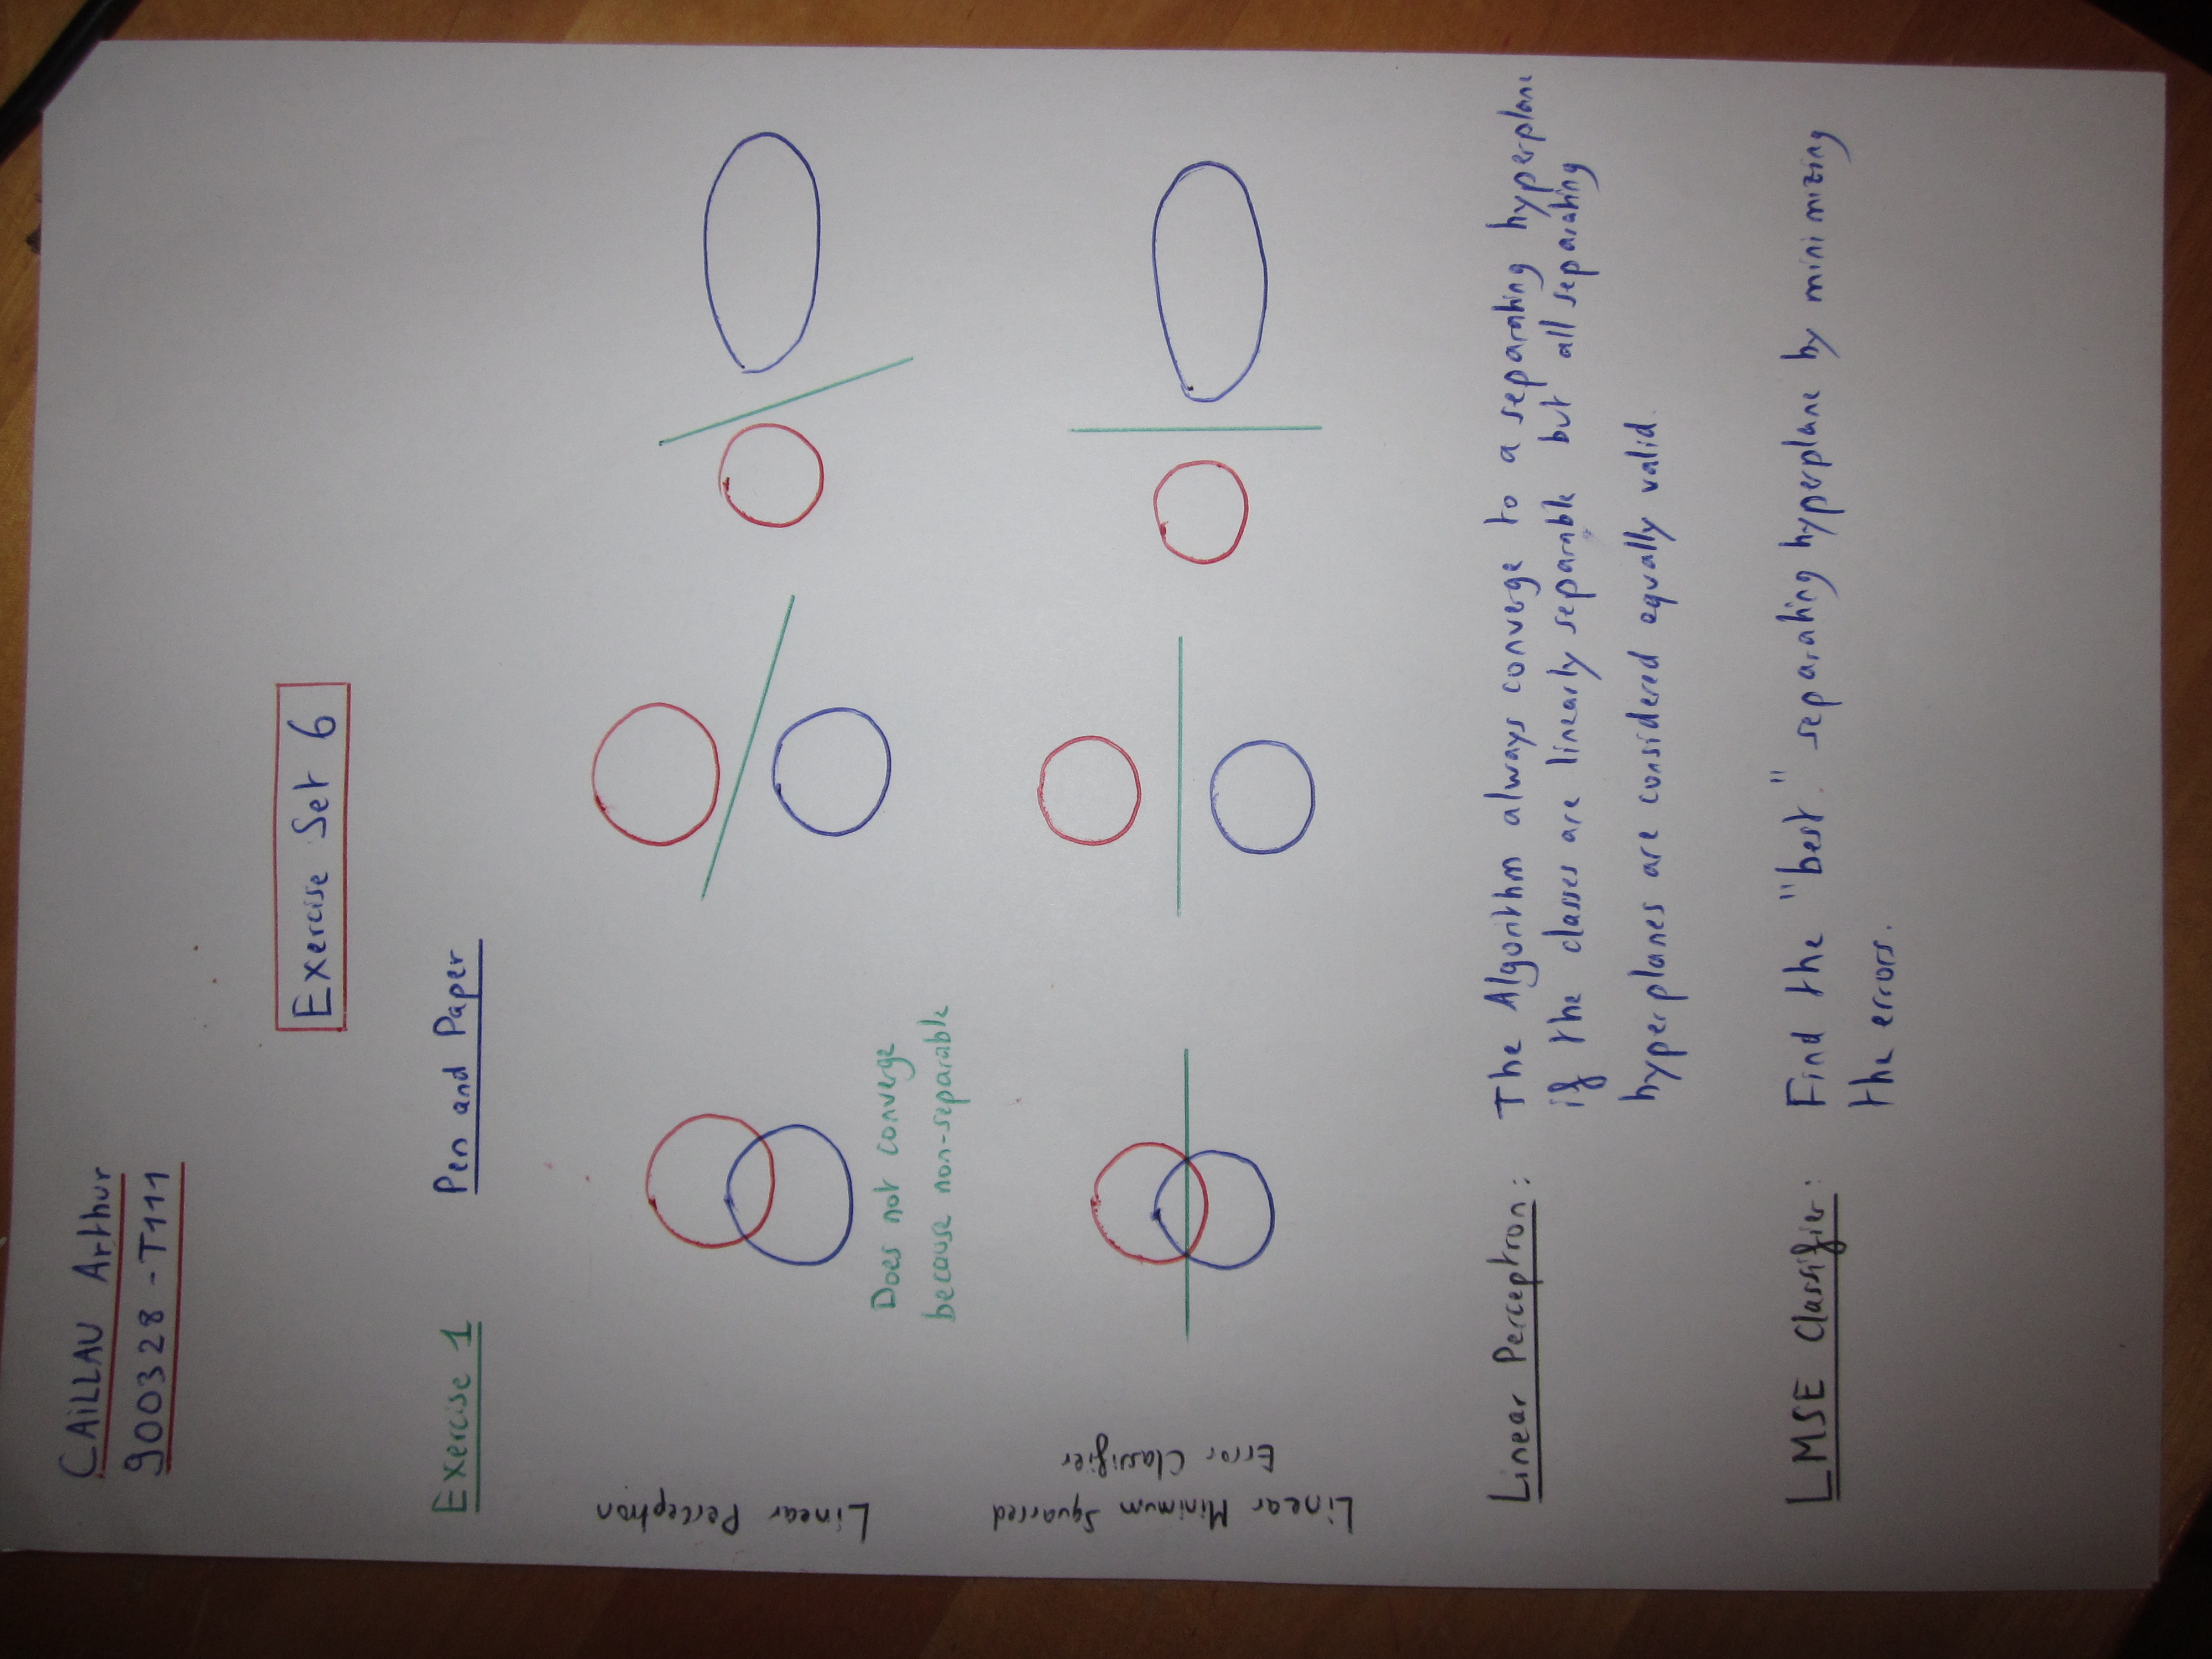 CAiLLAU Arthur
900328 - T111
Exercise Set 6
Exercise 1 Pen and Paper
Linear Perceptron
Does not converge
because non-separable
Linear Minimum Squarred
Error Classifier
Linear Perceptron: The Algorithm always converge to a separating hyperplane
if the classes are linearly separable but all separating
hyperplanes are considered equally valid.
LMSE Classifier: Find the "best." separating hyperplane by minimizing
the errors.